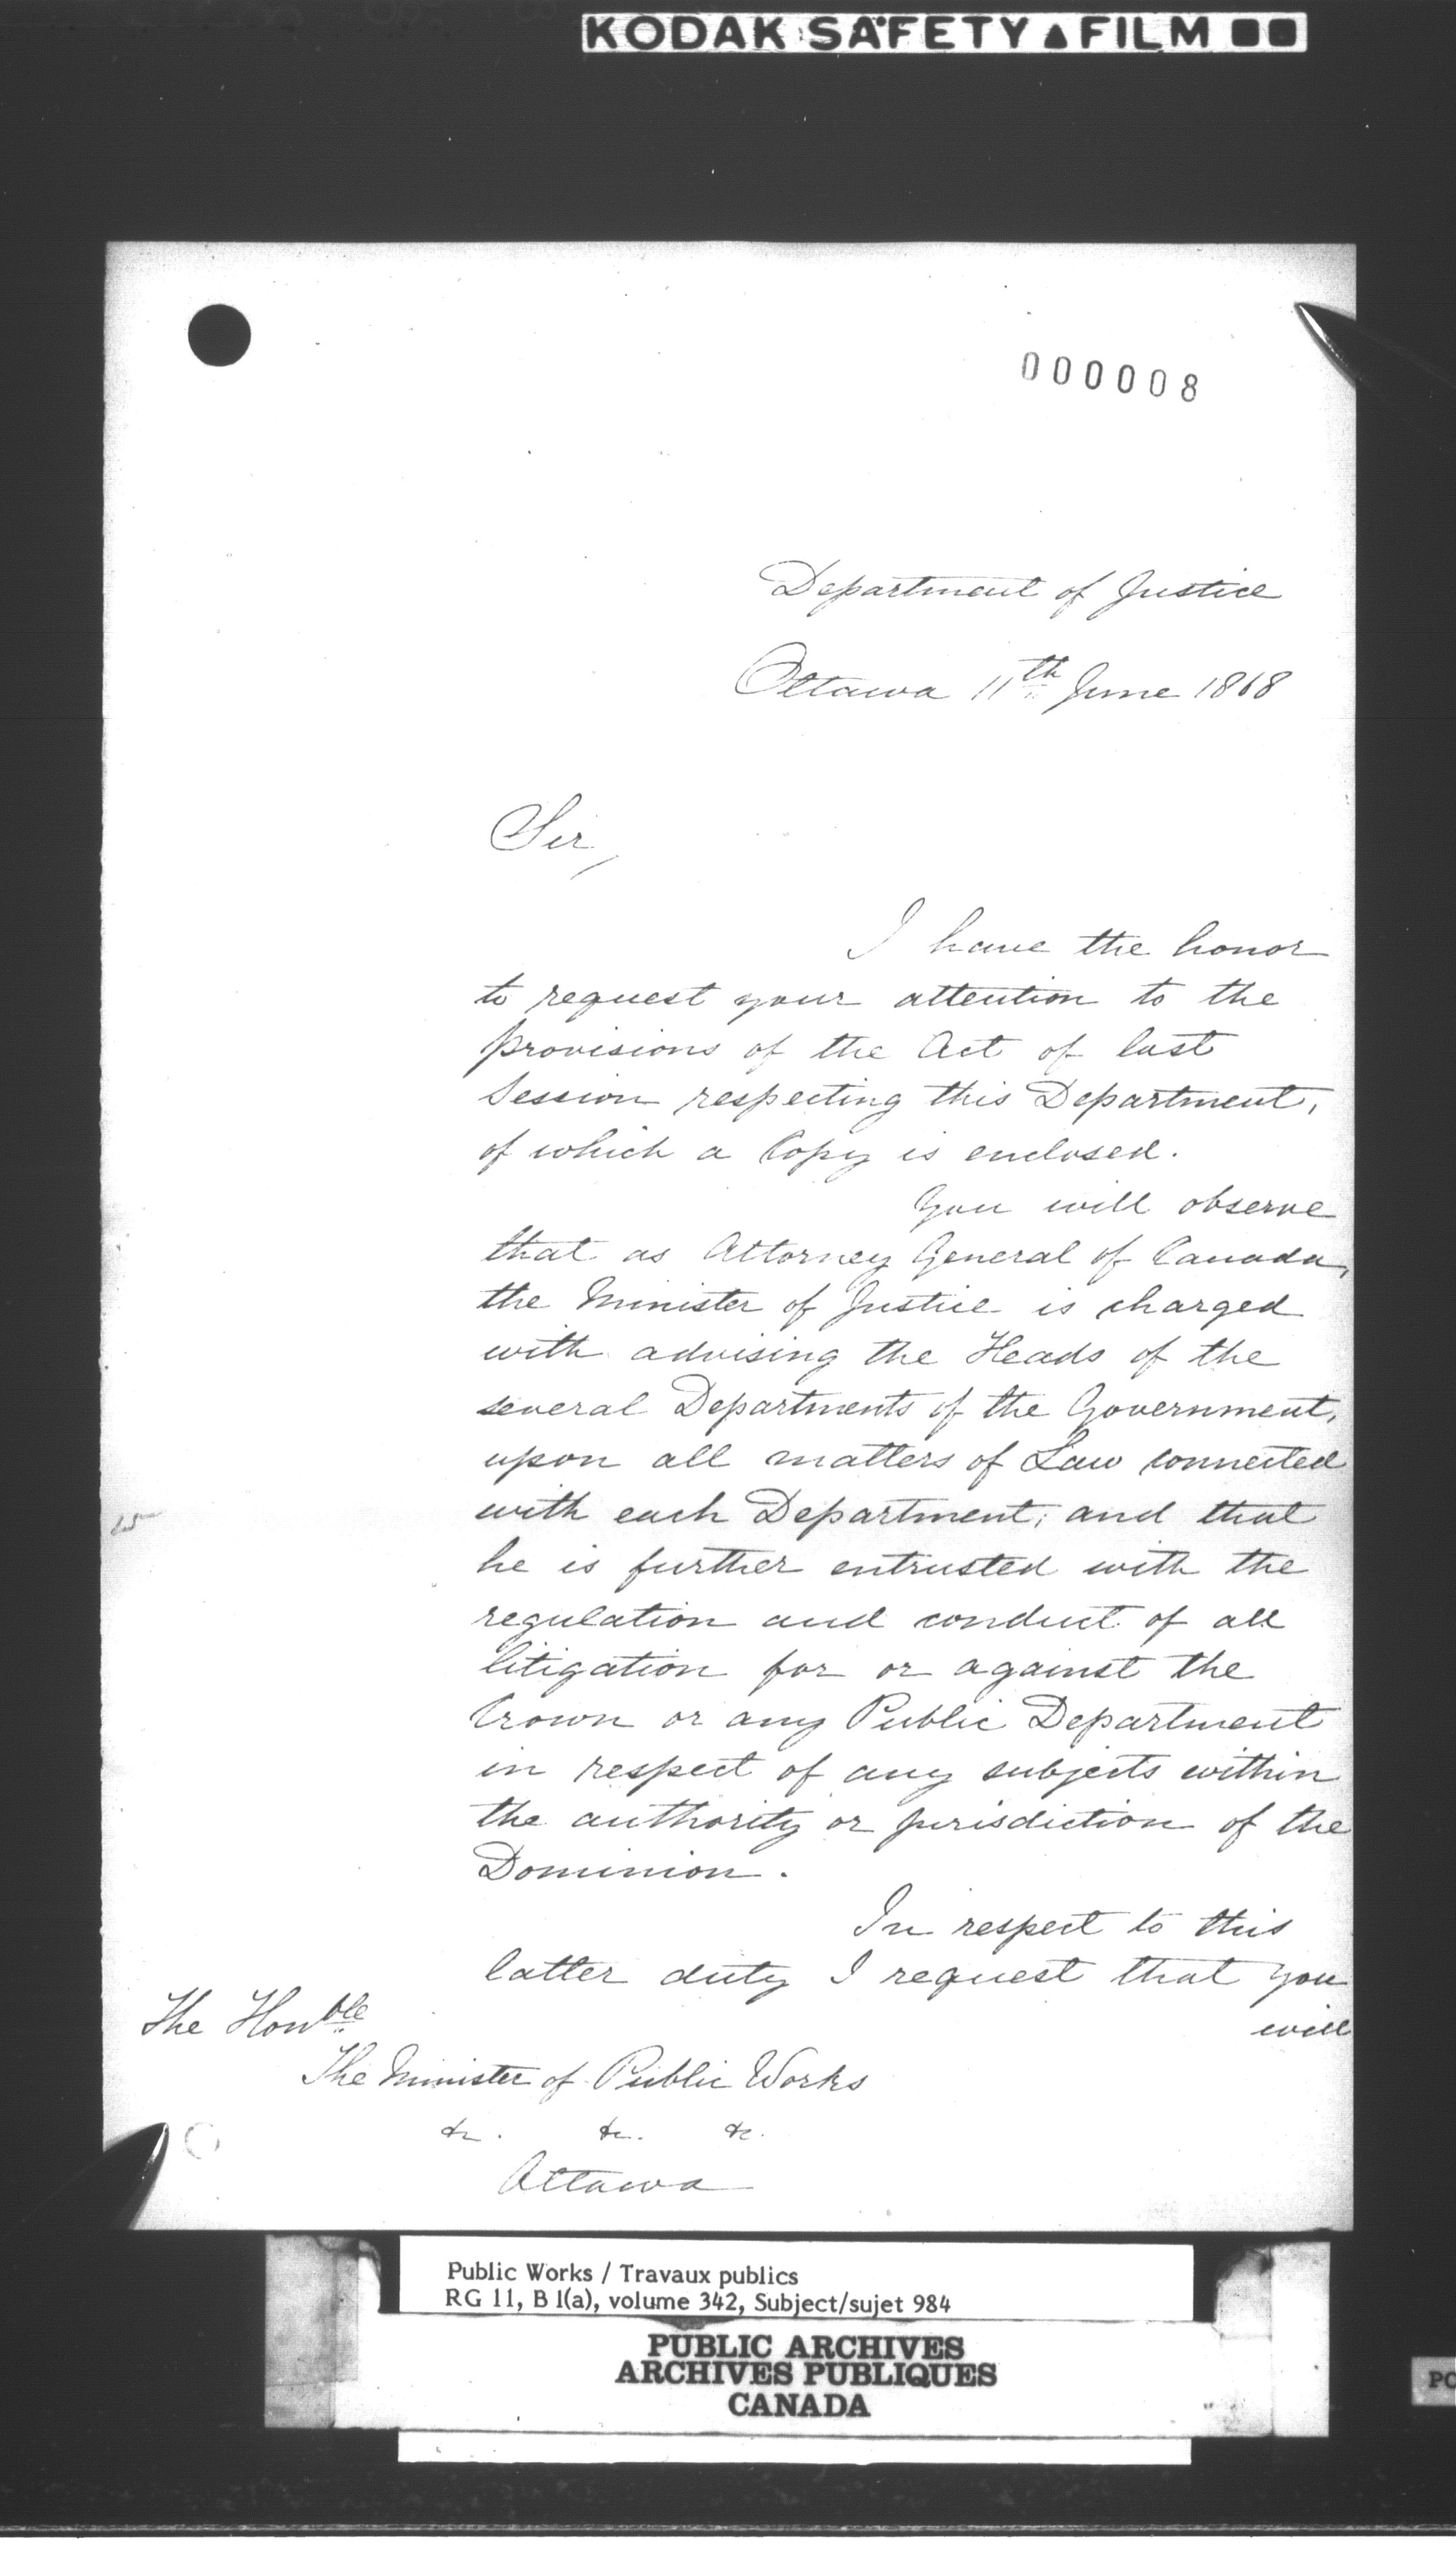 KODAK SAFETY FILM
000008
Department of Justice
Ottawa 11th June 1868
Sir,
I have the honor
to request your attention to the
provisions of the Act of last
Session respecting this Department,
of which a Copy is enclosed.
You will observe
that as Attorney General of Canada,
the Minister of Justice is charged
with advising the Heads of the
several Departments of the Government,
upon all matters of Law connected
with each Department; and that
he is further entrusted with the
regulation and conduct of all
litigation for or against the
Crown or any Public Department
in respect of any subjects within
the authority or jurisdiction of the
Dominion.
In respect to this
latter duty I request that you
will
The Honble
The Minister of Public Works
&c. &c. &c.
Ottawa
Public Works / Travaux publics
RG 11, B 1(a), volume 342, Subject/sujet 984
PUBLIC ARCHIVES
ARCHIVES PUBLIQUES
CANADA